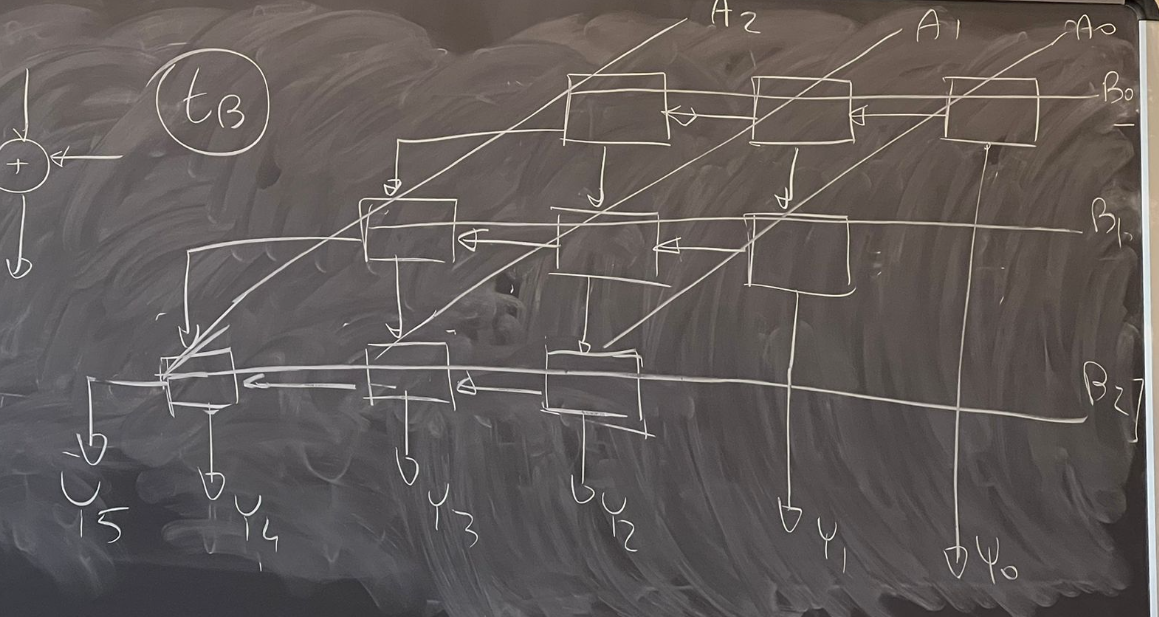 A2 A1 A0
tB B0
+
B1
B2
Y5 Y4 Y3 Y2 Y1 Y0